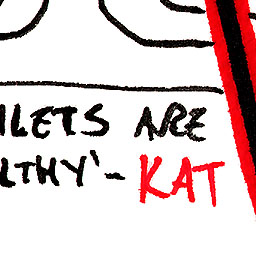 ILETS ARE
LTHY'- KAT